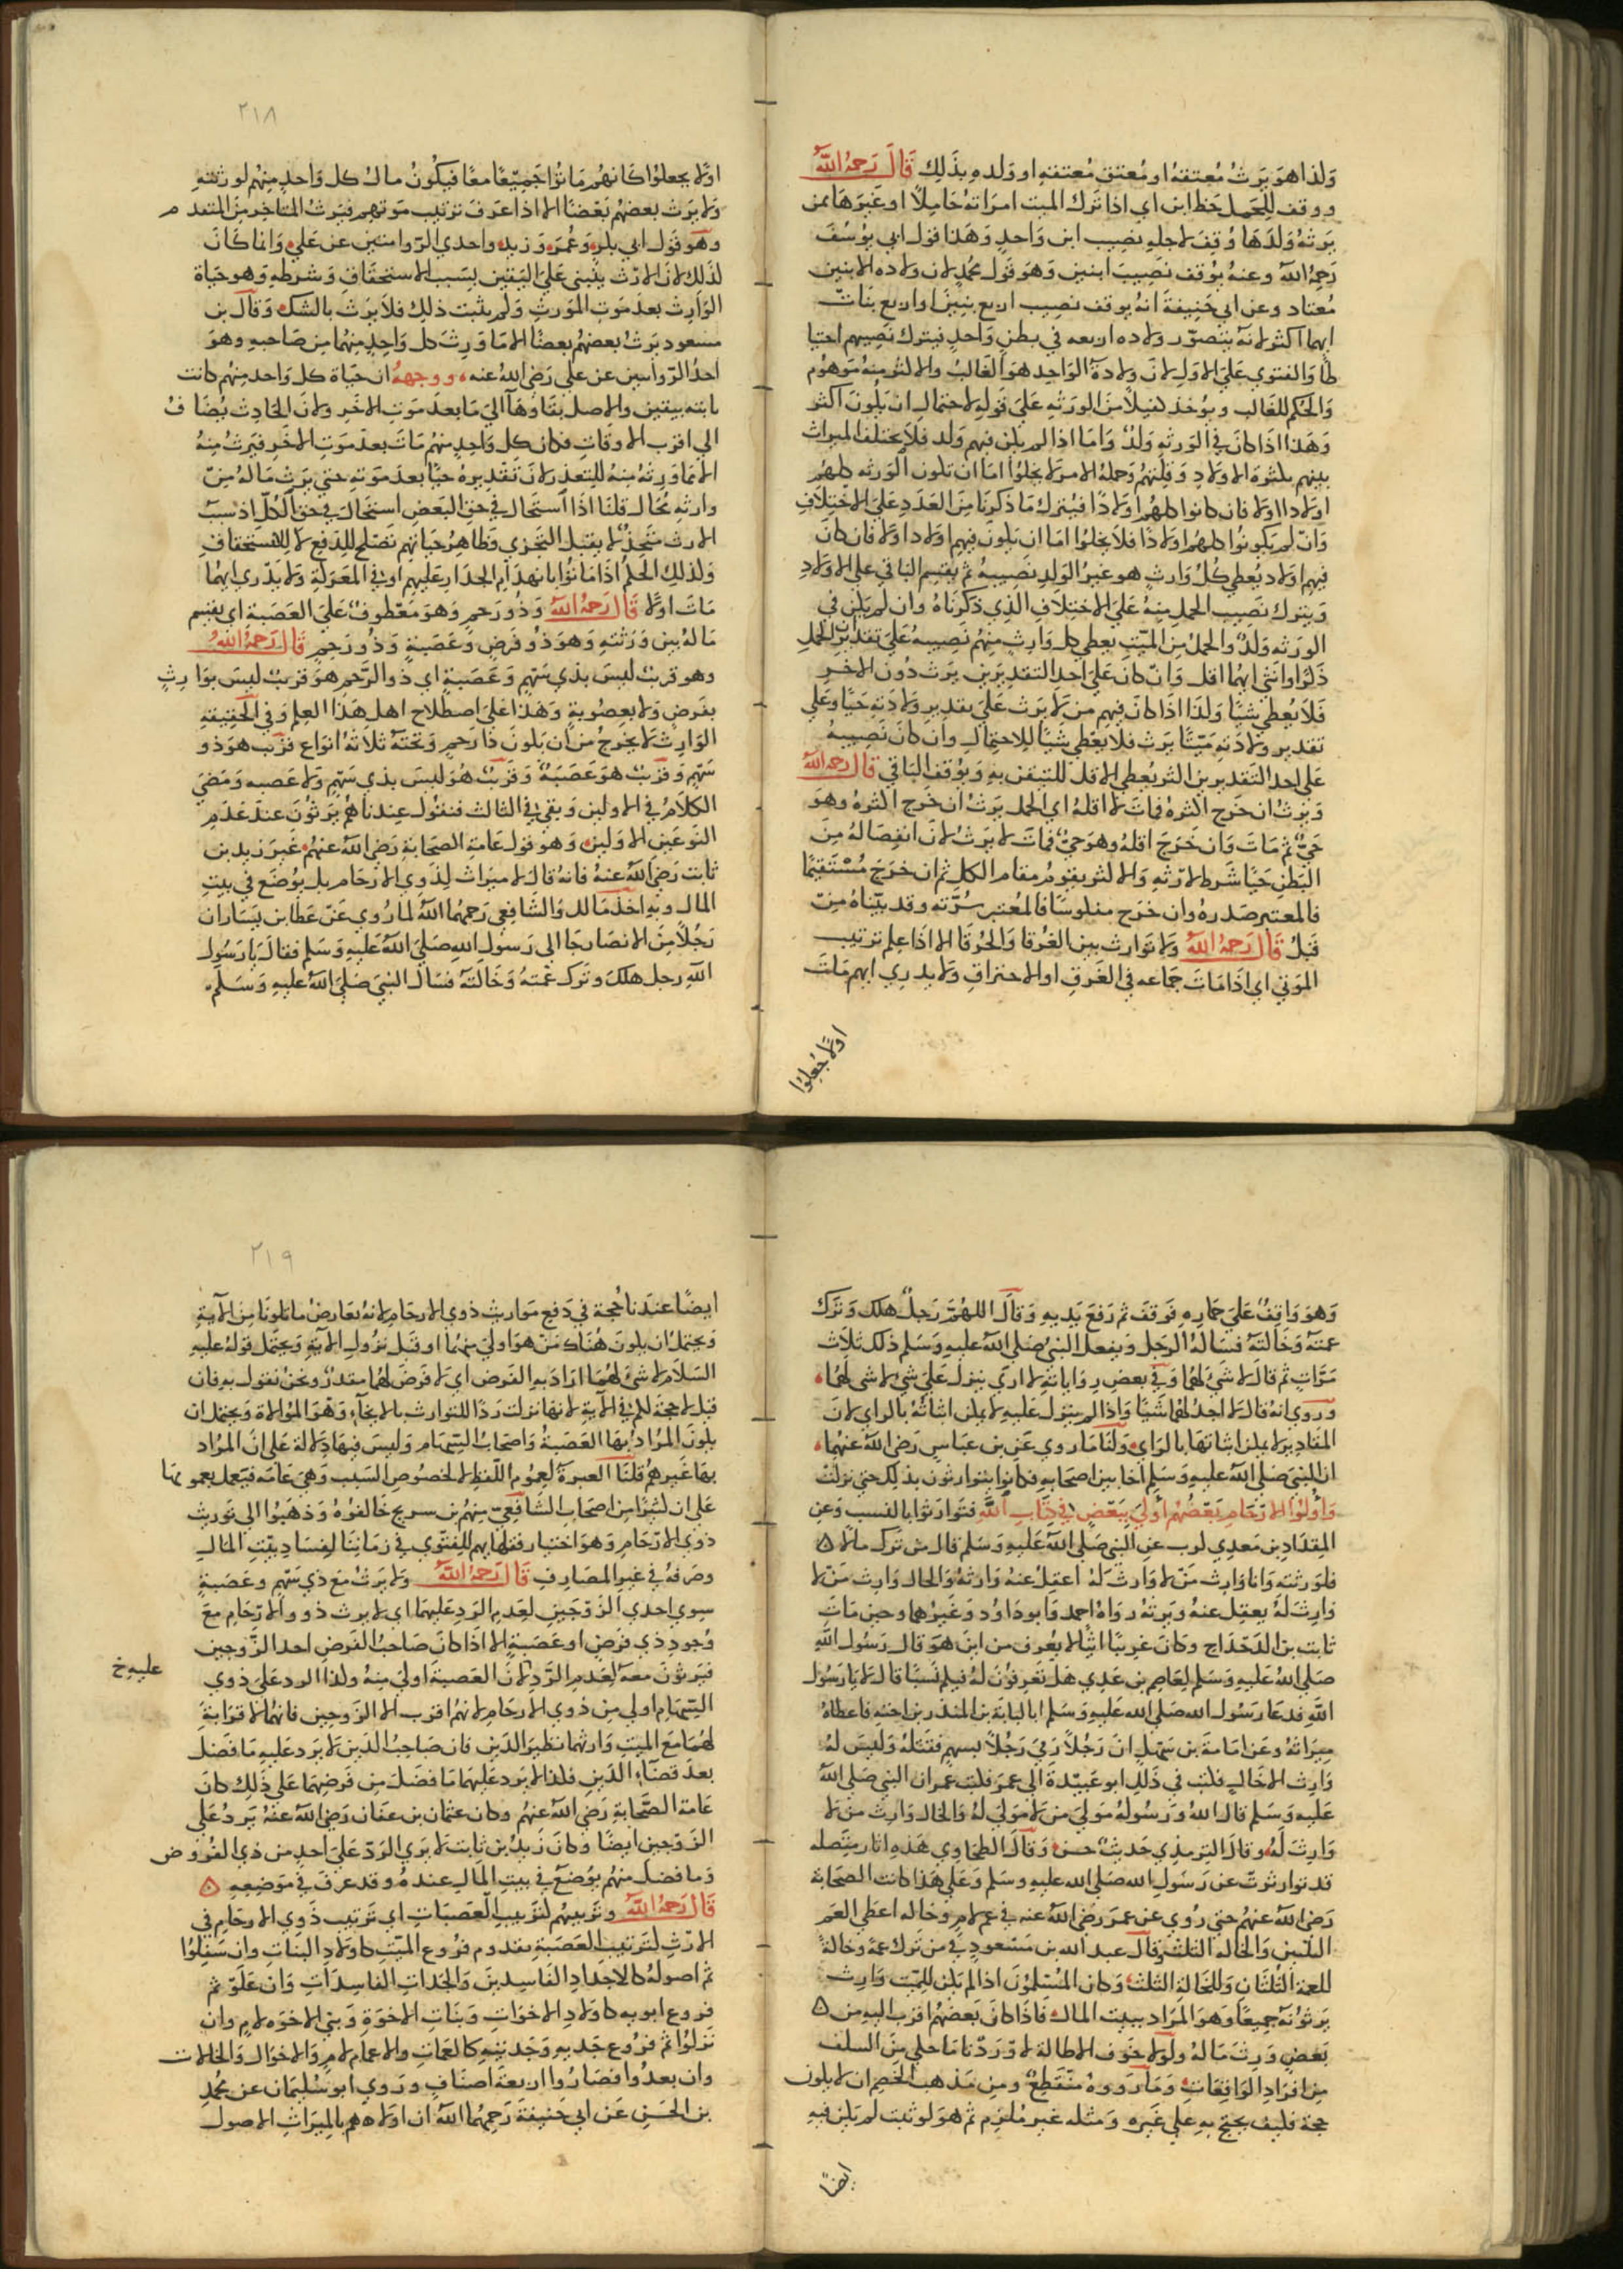 ولذا هو يَرثُ مُعتقهُ او مُعتق مُعتقهِ او ولده بذَلِك قَالَ رَحمهُ اللهُ
ووقف للِحَمل حَظ ابن اي اذا تَرك الميت امرَاتهُ حَامِلاً او غَيرَهَا ممن
يَرثهُ وَلَدَهَا وُقِفَ لاجلهِ نصِيب ابن وَاحدٍ وَهَذا قول ابي يُوسُفَ
رَحِمهُ اللهُ وعنهُ يُوْقف نَصِيبَ ابنين وَهوَ قَول محُمدٍ لان ولاده الابنين
مُعتاد وعن ابي حَنيفةَ انهُ يوقف نصِيب اربع بنِينَ او اربع بَنات
ايهما اكثر لانهُ يتصوّر ولاده اربعه في بطنٍ وَاحدٍ فيترك نَصِيبهم احتيا
طًا وَالفتوي عَليَ الاولِ لانَ وِلادةَ الوَاحِد هوَ الغَالبُ والاكثر منهُ مَوهُوم
وَالحكم للغَالب ويوُخذ كفيلاً منَ الورَثهِ عَليَ قولهِ لاحتمالِ ان يكُونَ اكثر
وَهَذا اذَا كانَ في الورَثهِ وَلدٌ وَامَا اذا لم يكن فيهم وَلد فلاَ يختلف الميراث
بينهم بكثرَة الاولادِ وَقِلتِهم وَجملة الامر لا يخلُوا امَا ان تكون الورَثه كلهُم
اولادا اولا فان كانوا كلهُم اولادًا فيُترك مَا ذكرنَا منَ العَدَدِ عَليَ الاختِلافِ
وَانّ لم يكونوُا كلهُم اولادًا فلاَ يَخلُوا امَا ان يكُونَ فيهِم اولادا ولا فان كانَ
فيهم اولاد يُعطي كُلُ وَارثٍ هو غيرُ الولدِ نصِيبهُ ثم يقسِم الباقي علي الاولادِ
وَيترك نَصِيب الحمل منهُ عَليَ الاختِلاَفِ الذِي ذكرنَاهُ وان لم يكن في
الورَثهِ وَلدٌ والحملُ منِ الميّتِ يعطي كل وَارثٍ منِهُم نَصِيبهُ عَليَ تقديرِ ان الحَملِ
ذكرٌ او انثي ايهُما اقل وَانّ كانَ عَليَ احدِ التقدِيرَين يَرث دُون الاخرِ
فَلاَ يُعطيِ شيئًا وَلَذَا اذَا كانَ فيهم من لا يَرث عَليَ تقدير ولاَدَتهِ حَيًا وَعَلي
تقدير ولادَتهِ مَيّتًا يَرث فلا يعَطي شيئًا للاحتمالِ وان كانَ نَصِيبهُ
عَلي احد التقديرين اكثر يُعطي الاقل للتيقن بهِ وَيوُقف البَاقي قَال رحمه الله
وَيَرثُ ان خَرج اكثرهُ فماتَ لا اقلهُ اي الحمل يَرثُ ان خَرج اكثرهُ وهو
حَيٌّ ثم مَاتَ وَان خَرَجَ اقلهُ وهوَ حَيٌّ فماتَ لا يرَثُ لانَ انفِصَالهُ مِنَ
البَطنِ حَيًا شَرط لارثهِ وَالاكثر يقومُ مقام الكلِ ثم ان خرَجَ مُسْتَقيمًا
فالمُعتبر صَدرهُ وان خرَج منكوسًا فالمُعتبر سُرّته وقد بيّناهُ مِنّ
قَبلُ قَالَ رَحمهُ اللهُ وَلا توَارث بين الغَرْقا وَالحَرْقَا الا اذَا علِم ترتيب
المَوتي اي اذَا مَاتَ جمَاعه في الغَرقِ او الاحتراقِ وَلا يدرِي ايهم مَاتَ
اولاً جُعِلوُا
٢١٨
اولاً يجعلوُا كَانهُم مَاتوُا جَميّعًا معًا فيَكُونُ مالُ كل وَاحدٍ مِنهُم لورثتهِ
وَلا يرَث بعضهُم بَعْضًا الا اذا عَرفَ ترتيب مَوتهِم فيَرثُ المتاخِر منَ المتقدم
وهوَ قول ابي بكرٍ وَعُمَرَ وَزيدٍ واحدي الرّوايتين عن عَليٍ وَانما كانَ
لذَلِك لانَ الارث يبتنى عَليَ اليَقين بسَبب الاستحقَاقِ وَشرطهِ وَهو حَياة
الوَارث بعدَ مَوتِ المَورثِ وَلم يثبت ذلِكَ فلاَ يَرَث بالشكِ وَقالَ بن
مسعود يَرثُ بعضهُم بعضًا الا مَا وَرِثَ كل وَاحِدٍ مِنهُما مِن صَاحبهِ وهوَ
احدُ الرّوايتين عن علي رَضي اللهُ عنه ووجههُ ان حَيَاة كل وَاحد منهُم كانت
ثابته بيقين والاصل بَقَاوهَا اليَ مَا بعدَ موت الاخَر ولانَ الحَادِث يُضَافُ
الي اقرب الاوقَاتِ فكان كل وَاحدٍ منهُم مَاتَ بعدَ موَت الاخَر فيَرثُ منهُ
الا مَا وَرثهُ منهُ للتعذر لانَ تَقديرهُ حَيًا بعدَ مَوتهِ حتي يَرث مَالهُ مِنّ
وارثهِ مُحَال قلنَا اذَا استَحَال في حقِ البَعضِ استحَالَ في حقِ الكُلِ اذ سَبب
الارث متّحِدٌ لا يقبل التجَزي وَظاهِرُ حَيَاتهم تَصلح للِدَفعِ لا للِاسْتحقاقِ
ولذلِك الحكم اذَا مَاتوُا بانهدَام الجدَارِ عَليهم او في المَعرَكةِ وَلا يَدّري ايهُما
مَاتَ اولاً قَالَ رَحمهُ اللهُ وَذوُ رَحِمٍ وَهوَ مَعّطوفٌ عَليَ العَصَبةِ اي يقسم
مَالهُ بين وَرَثتهِ وَهوَ ذوُ فَرضٍ وَعَصَبةٍ وَذوُ رَحِمٍ قَالَ رَحمهُ اللهُ
وهو قريبٌ ليسَ بذي سَهّمٍ وَعَصَبةٍ اي ذو الرّحِم هوَ قريبٌ ليسَ بوَارثٍ
بفرَضٍ وَلا بعصُوبةٍ وَهَذا عَليَ اصطلاح اهل هَذا العِلم وَفي الحَقِيقهِ
الوَارِث لا يخرجُ من ان يكونَ ذَا رَحِمٍ وَتحتهَ ثلاثةُ انوَاع قرِيب هوَ ذو
سَهّمٍ وَقرَيبٌ هوَ عَصَبَةٌ وَقَريبٌ هُوَ ليسَ بذي سَهّمٍ وَلا عَصبهِ وَمَضيَ
الكلاَمُ في الاولين وَبقي في الثالث فنقُول عِندنا هُم يَرثوُنَ عندَ عَدَمِ
النوَعَين الاوَلين وَهو قول عَامة الصحَابةِ رَضي اللهُ عنهُم غيرَ زيد بن
ثابت رَضي اللهُ عنهُ فانهُ قالَ لا ميرَاث لِذَوي الارحَام بل يوُضَع في بيتِ
المالِ وبهِ اخَذ مَالك وَالشَافِعي رَحِمهُما اللهُ لما رُويِ عَن عَطا بن يسَار ان
رَجُلاً مِنَ الانصَار جَا الي رَسوُلِ اللهِ صَليَ اللهُ عَليهِ وَسَلم فقالَ يَا رَسوُل
اللهِ رجل هلكَ وتَركَ عَمتهُ وَخَالتهُ فسَالَ النبيَ صَليَ اللهُ عليهِ وَسَلم
وَهوَ وَاقِفٌ عَليَ حمَارهِ فوَقفَ ثم رَفعَ يَديهِ وَقالَ اللهُمَّ رَجلٌ هلكَ وَتَركَ
عمتهُ وَخَالتهُ فسَالهُ الرجَل وَيفعل النبيُ صَلي اللهُ عليهِ وَسَلم ذلكَ ثلاَث
مَرّاتٍ ثم قالَ لا شيَ لهُمَا وَفي بعضِ رواياتهِ لا اري ينزل عَليَ شي لا شي لهُما
وَروي انهُ قال لا اجدُ لهُما شَيئًا وَاذا لم ينزل عَليهِ لا يمكن اثباتهُ بالراي لانَ
المقَادير لا يمكن اثباتها بالرَايِ وَلنَا مَا روي عَن بن عبَاسٍ رَضي اللهُ عنهُما
ان النبيَ صَلي اللهُ عليهِ وَسَلم اخَا بين اصحَابهِ فكانوا يتوارثون بذلِكَ حتي نزلت
وَاُولوُا الارحَام بَعّضُهُم اَوْليَ ببَعّضٍ في كِتَابِ اللهِ فَتوَارَثوُا بالنسَبِ وَعنِ
المِقدَادِ بن مَعدِي كرب عنِ النبيِ صَلي اللهُ عَليهِ وَسَلم قال من تَركَ مالاً
فلورَثتهِ وَانا وَارِث مَنّ لا وَارِثَ لهُ اعقِل عنهُ وَارثهُ وَالخال وَارِث مَنّ لا
وَارِثَ لَهُ يعقِل عنهُ وَيَرثهُ رَوَاهُ احمد وَابودَاوُد وَغَيرُهما وحين مَاتَ
ثابت بن الدَحّدَاحِ وَكانَ غريبًا اتِّيًا لا يُعرف من اينَ هوَ قال رَسوُل اللهِ
صَلي اللهُ عَليهِ وَسَلم لعَاصِم بن عَدِي هَل تَعرِفوُنَ لهُ فيكم نَسَبًا قالَ لا يَا رَسوُل
اللهِ فدعَا رَسُول الله صَلي الله عَليهِ وَسَلم ابا لبَابةَ بن المنذر بن اختهِ فاعطاهُ
ميرَاثهُ وعَن امامةَ بن سَهّلٍ انَ رَجُلاً رَمي رَجُلاً بسَهمٍ فقتلهُ وَليسَ لهُ
وَارِث الاخَالٍ فكتب في ذَلِكَ ابو عبَيّدةَ الي عمرَ فكتب عمر ان النبي صَلي اللهُ
عَليهِ وَسَلم قالَ اللهُ وَرَسوُلهُ مَوليَ مَن لا مَوليَ لهُ وَالخال وَارِث من لا
وَارِثَ لهُ وقالَ الترمذِي حَديث حسن وَقالَ الطحَاوِي هَذهِ اثار متّصله
قد توارترتّ عن رَسوُل الله صَلي الله عليهِ وسَلم وَعَلي هَذا كانت الصحَابة
رَضي اللهُ عنهُم حتي رُوي عن عمرَ رَضي اللهُ عنه في عم لامٍ وخاله اعطي العَم
الثلثين وَالخَاله الثلث وَقالَ عبد الله بن مَسّعود في من تَرك عمة وخالةً
للعمةِ الثلثَان وَللخَالةِ الثلث وَكان المُسْلِموُنَ اذا لم يَكن للِمَيّت وَارِث
يَرثوُنهَ جمِيعًا وَهوَ المرَاد ببيت المال فاذَا كانَ بَعضهُم اقرب اليهِ من
بَعضٍ وَرِثَ مَا لهُ ولوَلا خَوف الاطالة لاوّرَدّنا مَا حكي منَ السلف
مِن افرَادِ الوَاقِعَاتِ وَمَا رَووهُ منّقَطعٌ ومِن مَذهب الخصم ان لا يكون
حجة فكيف يحتج به عَلي غيرهِ وَمثله غير مُلزمٍ ثم هوَ لوَ ثبت لم يَكن فيهِ
ايضًا
٢١٩
ايضًا عندَنا حُجة في دَفعِ مَوَاريث ذوي الارحَامِ لانهُ يعَارِض مَا تلوَنَا مِنَ الآيةِ
وَيحتملُ ان يكونَ هُناكَ مَنّ هوَ اوليَ منهُا او قبل نزُولِ الايةِ وَيحتمل قولهُ عليهِ
السَلامُ لا شئَ لهُمَا ارَادَ بهِ الفَرض اي لا فَرضَ لهُما مقدرٌ ونحنُ نقول بهِ فان
قيل لا حجةَ لكم في الآيةِ لانهَا نزلت رَدًا للتوارث بالايخآءِ وَهوَ المُوالاة وَيحتمل ان
يكُون المُرادُ بهَا العَصَبةُ وَاصحَابُ السِّهَام وَليسَ فيهَا دَلالةُ عَلي انَ المُرَاد
بهَا غَيرهُم قلنَا العبرَةُ لعِموُم اللفظِ لا لخصُوصِ السَبب وَهيَ عَامَّه فيعمل بعمومها
علي ان كثيرًا مِن اصحَابِ الشَافعِي منهُم بن سريج خالفوُهُ وَذهَبوُا الي تَوريث
ذوي الارحَامِ وَهوَ اختيار فقهَائهم للفتوي في زمَاننا لفِسَادِ بيّتِ المَالِ
وصَرفهُ في غيرِ المصَارِفِ قَالَ رَحمهُ اللهُ وَلا يَرثُ مَعَ ذي سَهّمٍ وعَصَبةٍ
سِوي احدِي الزوّجَينِ لعِدمِ الرَدِ عَليهَما اي لا يرث ذوو الارّحَام معَ
وُجودِ ذي فرَضٍ او عَصَبةٍ الا اذَا كانَ صَاحبُ الفَرضِ احد الزّوجين
فيَرثوُنَ معهُ لعِدمِ الرّدِ لانَ العصبةَ اوليَ منهُ ولذَا الرد عَليَ ذوي
عليهِ خ
السِّهَام اولي مِن ذوي الارحَامِ لانهُم اقرب الا الزوجين فانهُما لا قرَابةَ
لهُما معَ الميت وَارثهُما نظيرُ الدَينِ فان صَاحبُ الدَين لا يرد عليهِ مَا فضل
بعدَ قضَآءِ الدَينِ فكذا لا يرد عَليهَما مَا فضَلَ مِن فَرضِهمَا عَلي ذَلِك كان
عَامة الصَّحَابةِ رَضي اللهُ عنهُم وكان عثمان بن عفان رَضي اللهُ عنهُ يَرد عَلي
الزوّجين ايضًا وكانَ زيدُ بن ثابت لا يَرَي الرَدّ عَليَ احدٍ من ذي الفُروُض
وَمَا فضل منهُم يوُضعُ في بيتِ المَالِ عندهُ وقد عرفَ في مَوضِعهِ
قَالَ رَحمهُ اللهُ وَترتيبهُم كترتيب العَصَبَاتِ اي تَرتيب ذَوي الارحَامِ في
الارّثِ كتَرتيب العَصَبةِ يقدم فروُع الميّت كاولادِ البنَاتِ وان سَفلوُا
ثم اصولهُ كالاجدَادِ الفَاسِدِينَ وَالجَداتِ الفَاسِدَاتِ وَان عَلَوّ ثم
فروع ابويهِ كاولادِ الاخوَاتِ وَبنَاتِ الاخوَةِ وَبني الاخوَه لامٍ وان
نَزلوُا ثم فرُوع جَديهِ وَجَدتيهِ كالعمَاتِ والاعمَام لامٍ وَالاخوَالِ وَالخالات
وان بعدُوا فصَارُوا اربعةَ اصنَافٍ وَرَوي ابوسُليمَان عن محُمدِ
بن الحسَنِ عَن ابي حَنيفةَ رَحِمهُما اللهُ ان اولاه هم بالمِيرَاثِ الاصوُل